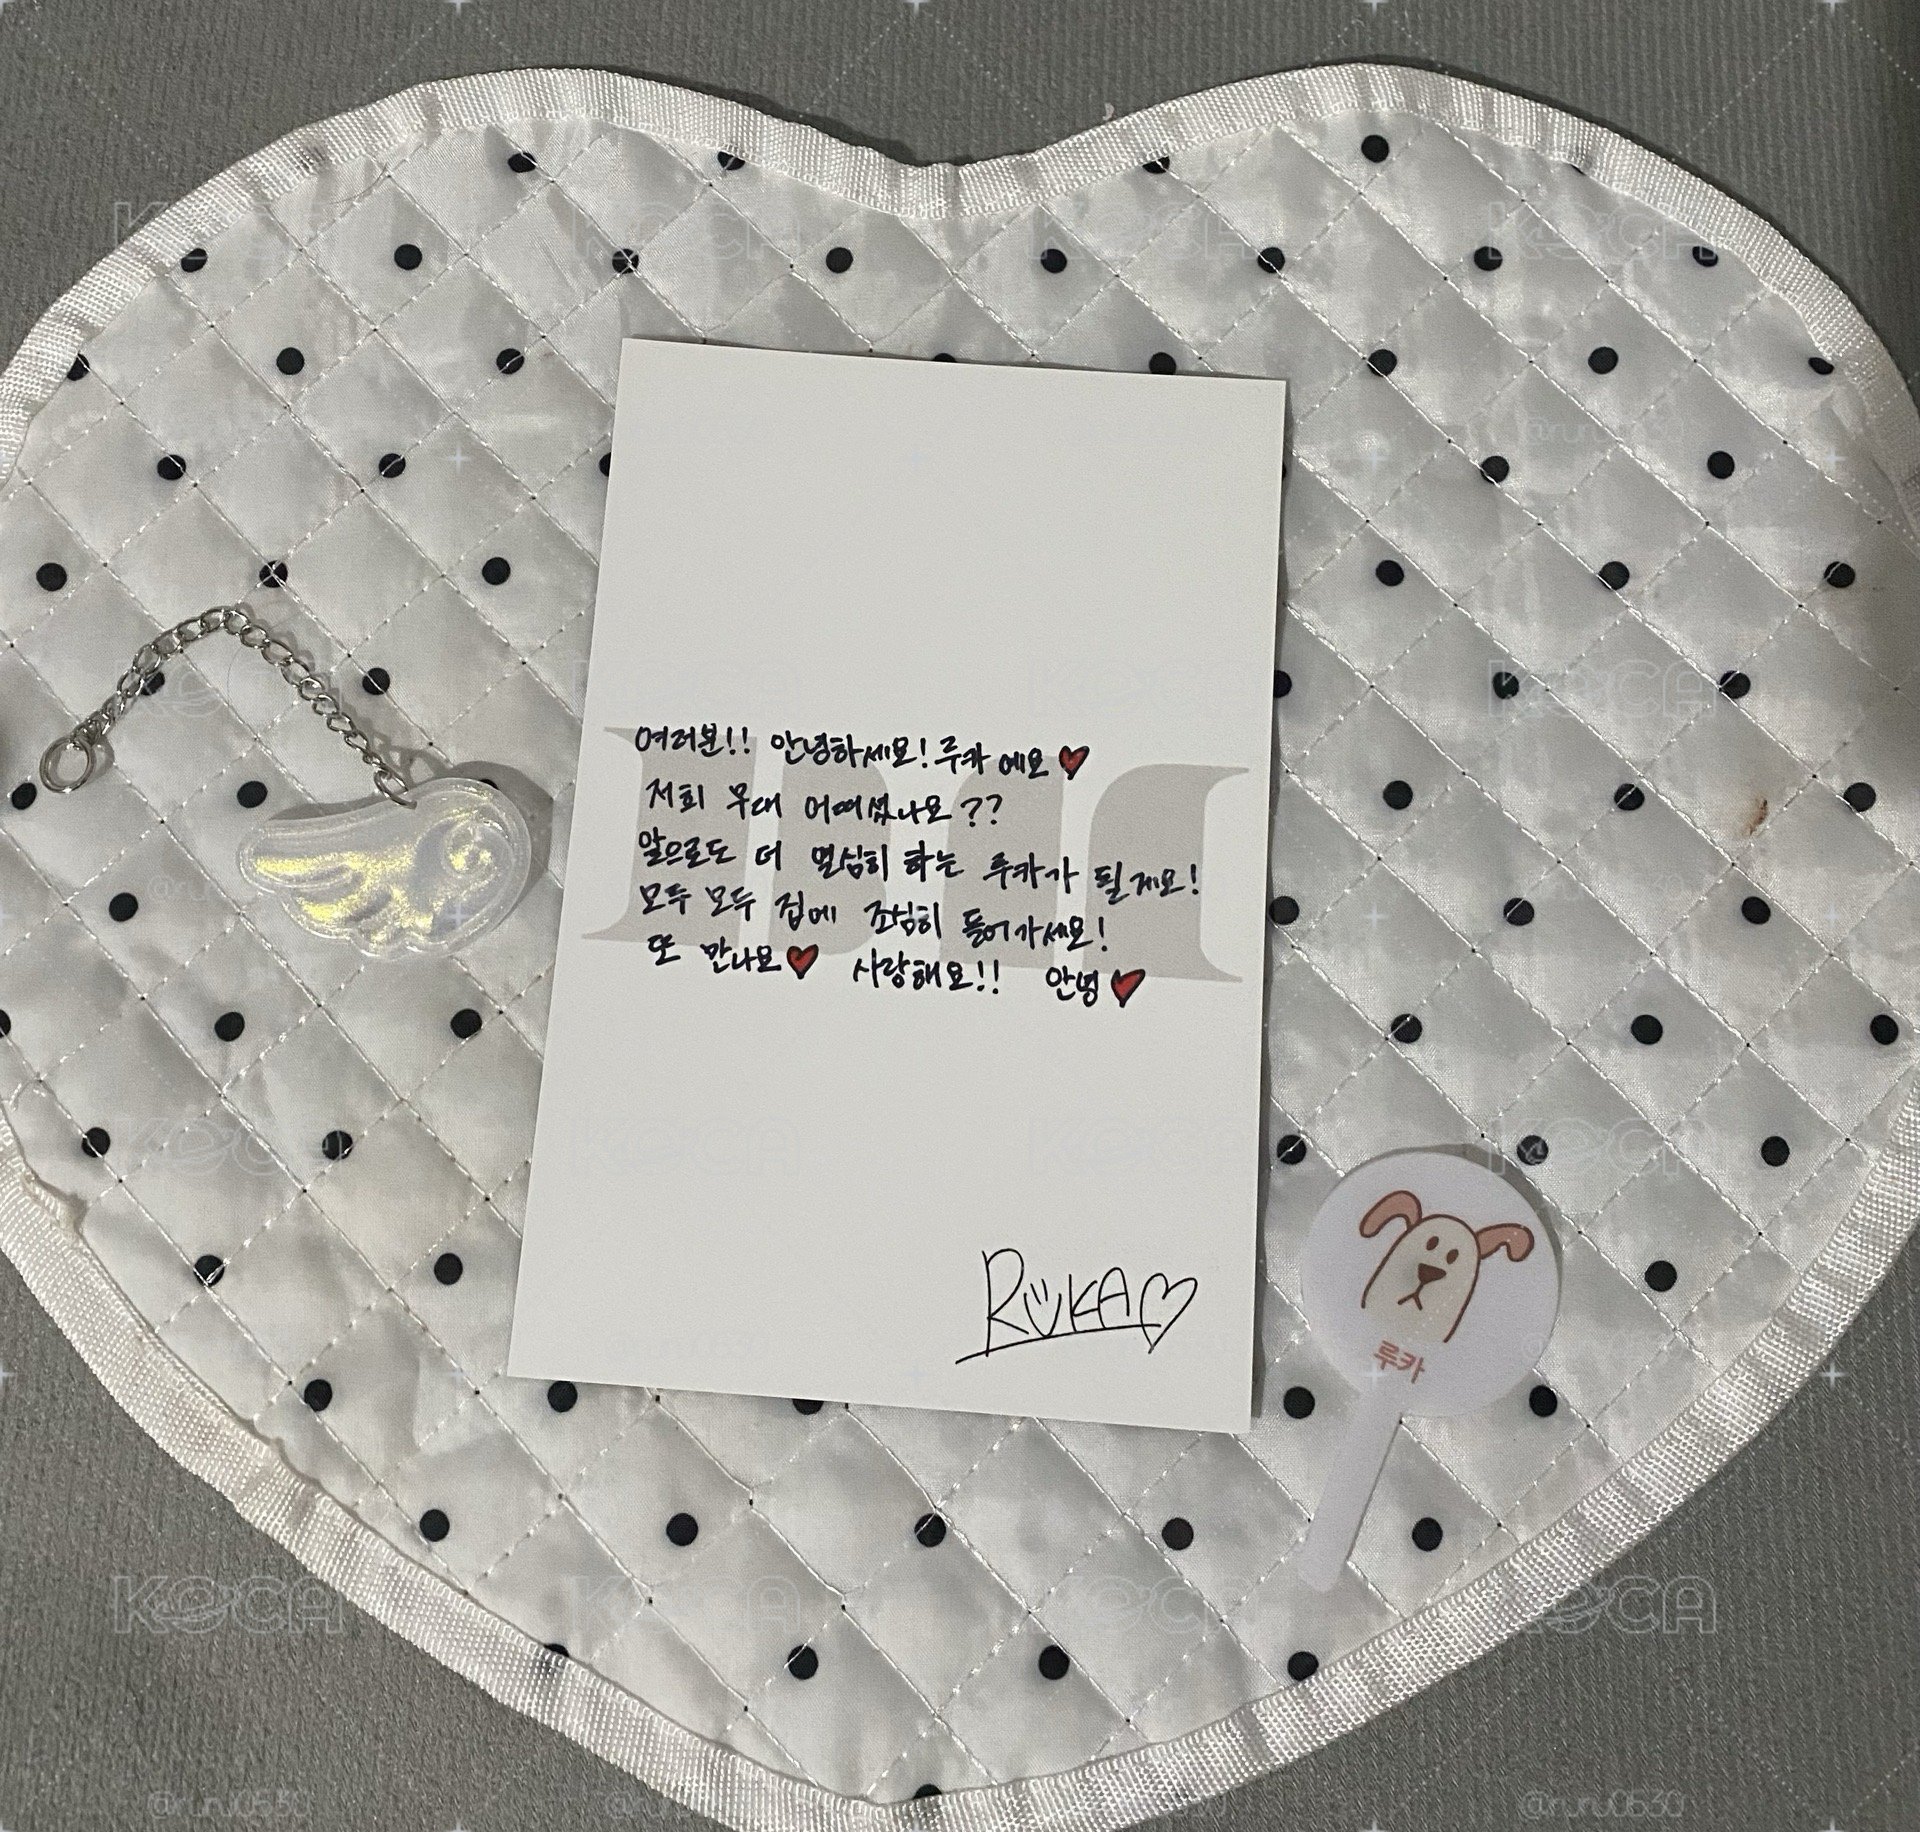 여러분!! 안녕하세요! 루카 에요♥
저희 무대 어떠셨나요??
앞으로도 더 열심히 하는 루카가 될게요!
모두 모두 집에 조심히 들어가세요!
또 만나요♥ 사랑해요!! 안녕♥
RUKA♡
루카
KOCA
@ruru0530